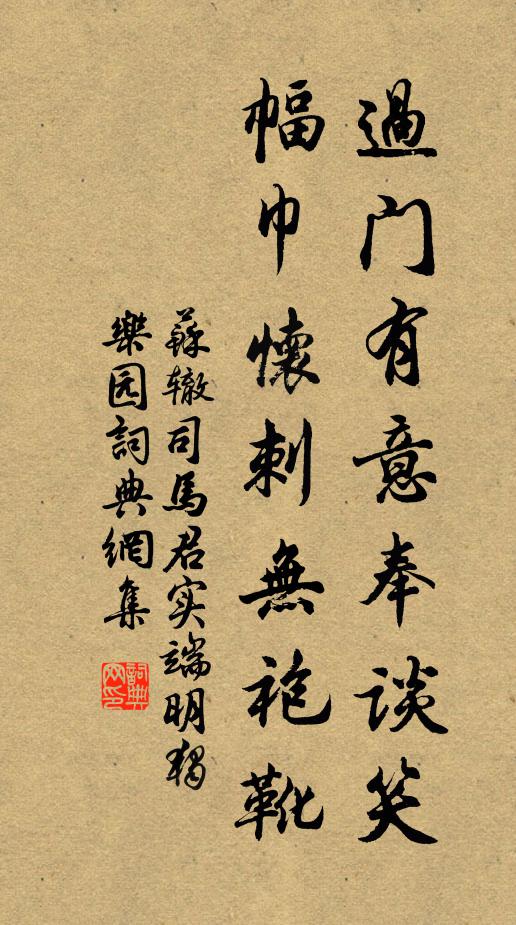 過门有意奉谈笑
幅巾懷刺無袍靴
蘇辙司馬君实端明獨
樂园詞典網集
詞典网印